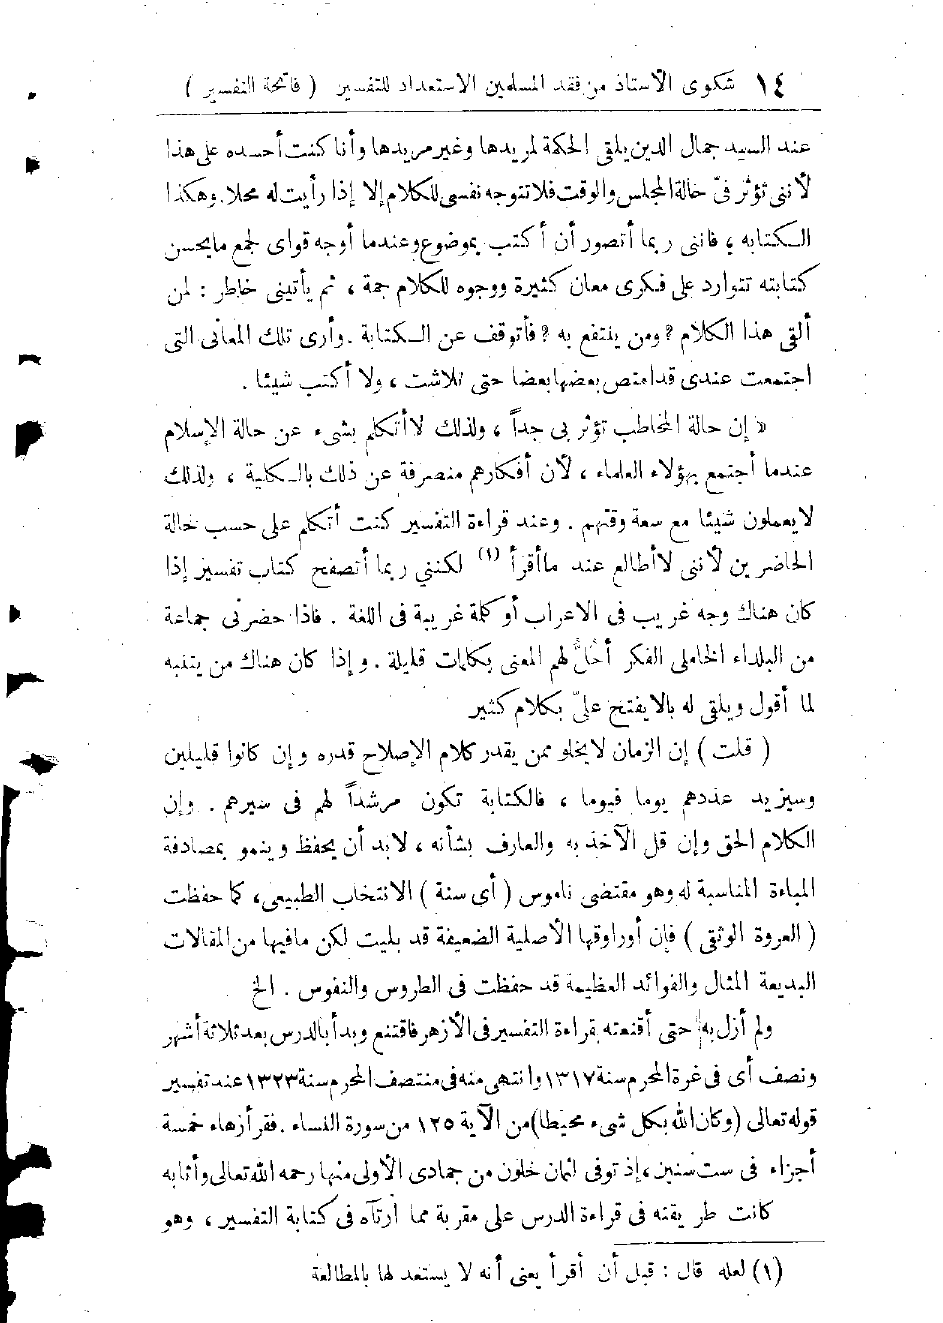 ١٤ شكوى الأستاذ من فقد المسلمين الاستعداد للتفسير ( فاتحة التفسير )
عند السيد جمال الدين يلقى الحكمة لمريدها وغير مريدها وأنا كنت أحسده على هذا
لأننى تؤثر فىّ حالة المجلس والوقت فلا تتوجه نفسى للكلام إلا إذا رأيت له محلا. وهكذا
الكتابه ، فاننى ربما أتصور أن أكتب بموضوع وعندما أوجه قواى لجمع ما يحسن
كتابته تتوارد على فكرى معان كثيرة ووجوه للكلام جمة ، ثم يأتينى خاطر : لمن
ألقى هذا الكلام ? ومن ينتفع به ? فأتوقف عن الكتابة . وأرى تلك المعانى التى
اجتمعت عندى قد امتص بعضها بعضا حتى تلاشت ، ولا أكتب شيئا .
« إن حالة المخاطب تؤثر بى جداً ، ولذلك لا أتكلم بشىء عن حالة الإسلام
عندما أجتمع بهؤلاء العلماء ، لأن أفكارهم منصرفة عن ذلك بالكلية ، ولذلك
لا يعملون شيئا مع سعة وقتهم . وعند قراءة التفسير كنت أتكلم على حسب حالة
الحاضرين لأننى لا أطالع عند ما أقرأ (١) لكننى ربما أتصفح كتاب تفسير إذا
كان هناك وجه غريب فى الاعراب أو كلمة غريبة فى اللغة . فاذا حضرنى جماعة
من البلداء الخاملى الفكر أحُلُّ لهم المعنى بكلمات قليلة . وإذا كان هناك من يتنبه
لما أقول ويلقى له بالا يفتح علىّ بكلام كثير
( قلت ) إن الزمان لا يخلو ممن يقدر كلام الإصلاح قدره وإن كانوا قليلين
وسيزيد عددهم يوما فيوما ، فالكتابة تكون مرشداً لهم فى سيرهم . وإن
الكلام الحق وإن قل الآخذ به والعارف بشأنه ، لابد أن يحفظ وينمو بمصادفة
المباءة المناسبة له وهو مقتضى ناموس ( أى سنة ) الانتخاب الطبيعى، كما حفظت
( العروة الوثقى ) فإن أوراقها الأصلية الضعيفة قد بليت لكن مافيها من المقالات
البديعة المثال والفوائد العظيمة قد حفظت فى الطروس والنفوس . الخ
ولم أزل به حتى أقنعته بقراءة التفسير فى الأزهر فاقتنع وبدأ بالدرس بعد ثلاثة أشهر
ونصف أى فى غرة المحرم سنة ١٣١٧ وانتهى منه فى منتصف المحرم سنة ١٣٢٣ عند تفسير
قوله تعالى (وكان الله بكل شىء محيطا) من الآية ١٢٥ من سورة النساء . فقرأ زهاء خمسة
أجزاء فى ست سنين ، إذ توفى لثمان خلون من جمادى الأولى منها رحمه الله تعالى وأثابه
كانت طريقته فى قراءة الدرس على مقربة مما ارتآه فى كتابة التفسير ، وهو
(١) لعله قال : قبل أن أقرأ يعنى أنه لا يستعد لها بالمطالعة